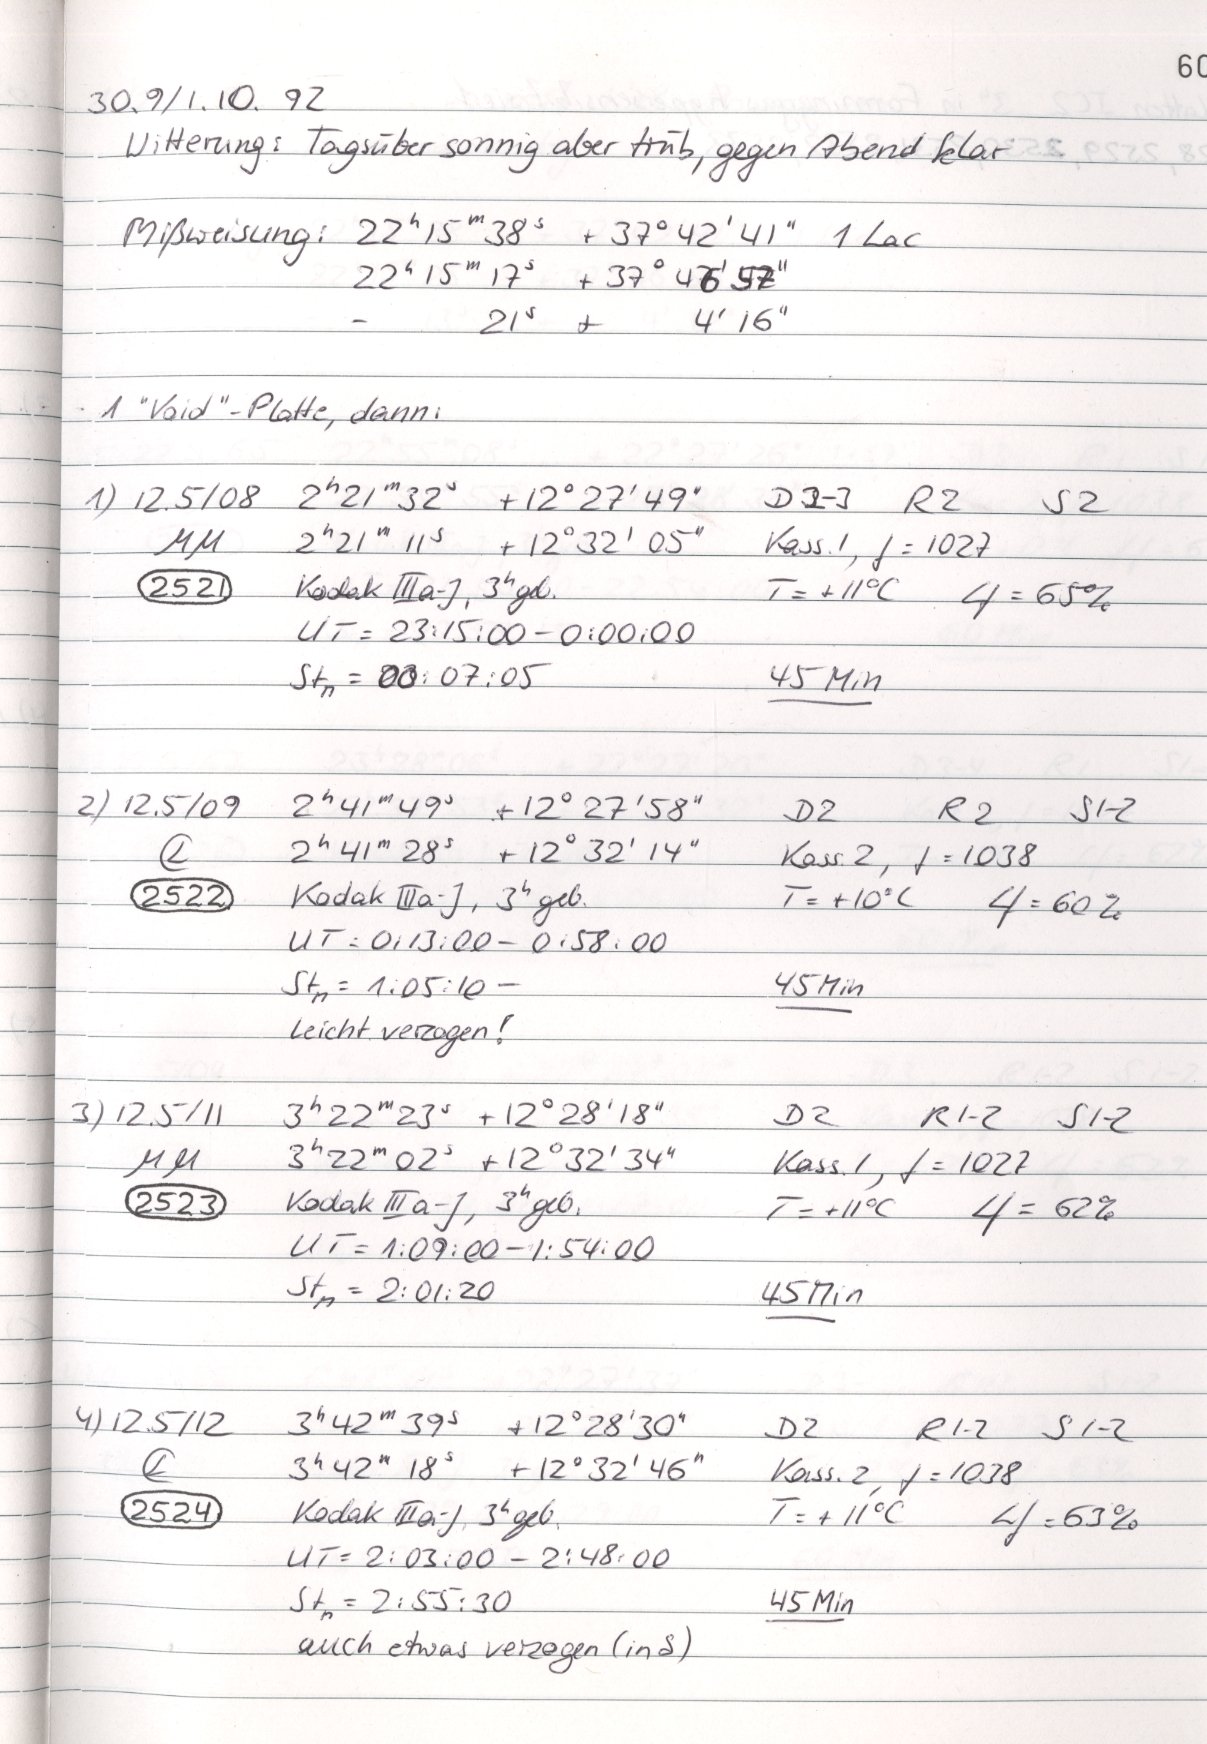 60
30.9/1.10. 92
Witterung: Tagsüber sonnig aber trüb, gegen Abend klar
Mißweisung: 22ʰ15ᵐ38ˢ +37°42'41" 1 Lac
22ʰ15ᵐ17ˢ +37°46'57"
- 21ˢ + 4'16"
1 "Void"-Platte, dann:
1) 12.5/08 2ʰ21ᵐ32ˢ +12°27'49" D2-3 R2 S2
MM 2ʰ21ᵐ11ˢ +12°32'05" Kass.1, f=1027
2521 Kodak IIIa-J, 3ʰgeb. T=+11°C =65%
UT=23:15:00-0:00:00
Stₙ = 00:07:05 45 Min
2) 12.5/09 2ʰ41ᵐ49ˢ +12°27'58" D2 R2 S1-2
2ʰ41ᵐ28ˢ +12°32'14" Kass.2, f=1038
2522 Kodak IIIa-J, 3ʰgeb. T=+10°C =60%
UT=0:13:00-0:58:00
Stₙ = 1:05:10- 45 Min
leicht verzogen!
3) 12.5/11 3ʰ22ᵐ23ˢ +12°28'18" D2 R1-2 S1-2
MM 3ʰ22ᵐ02ˢ +12°32'34" Kass.1, f=1027
2523 Kodak IIIa-J, 3ʰgeb. T=+11°C =62%
UT=1:09:00-1:54:00
Stₙ = 2:01:20 45 Min
4) 12.5/12 3ʰ42ᵐ39ˢ +12°28'30" D2 R1-2 S1-2
3ʰ42ᵐ18ˢ +12°32'46" Kass.2, f=1038
2524 Kodak IIIa-J, 3ʰgeb. T=+11°C =63%
UT=2:03:00-2:48:00
Stₙ = 2:55:30 45 Min
auch etwas verzogen (in δ)